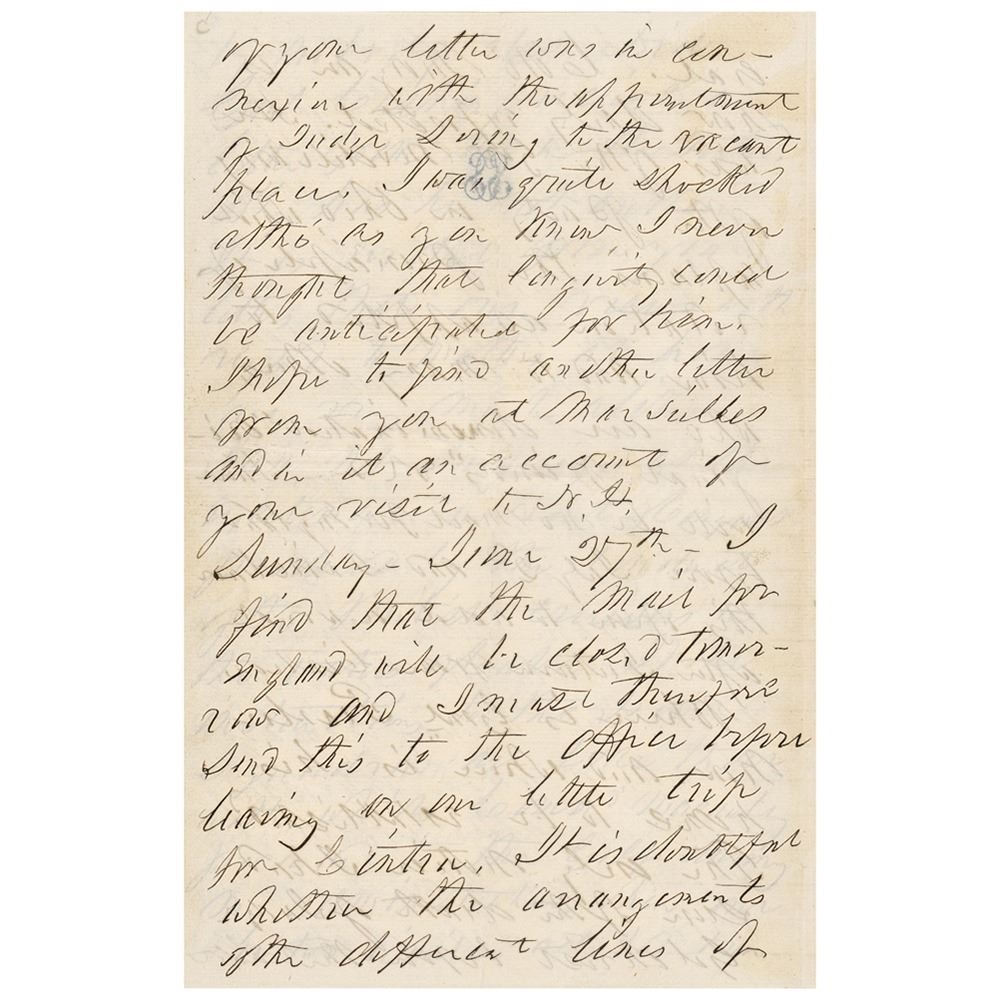 of your letter was in con-
nexion with the appointment
of Judge Loring to the vacant
place. I was quite shocked
altho' as you know I never
thought that longevity could
be anticipated for him.
I hope to find another letter
from you at Marseilles
and in it an account of
your visit to N. H.
Sunday - June 27th - I
find that the mail for
England will be closed tomor-
row and I must therefore
send this to the office before
leaving on our little trip
for Cintra. It is doubtful
whether the arrangements
of the different lines of